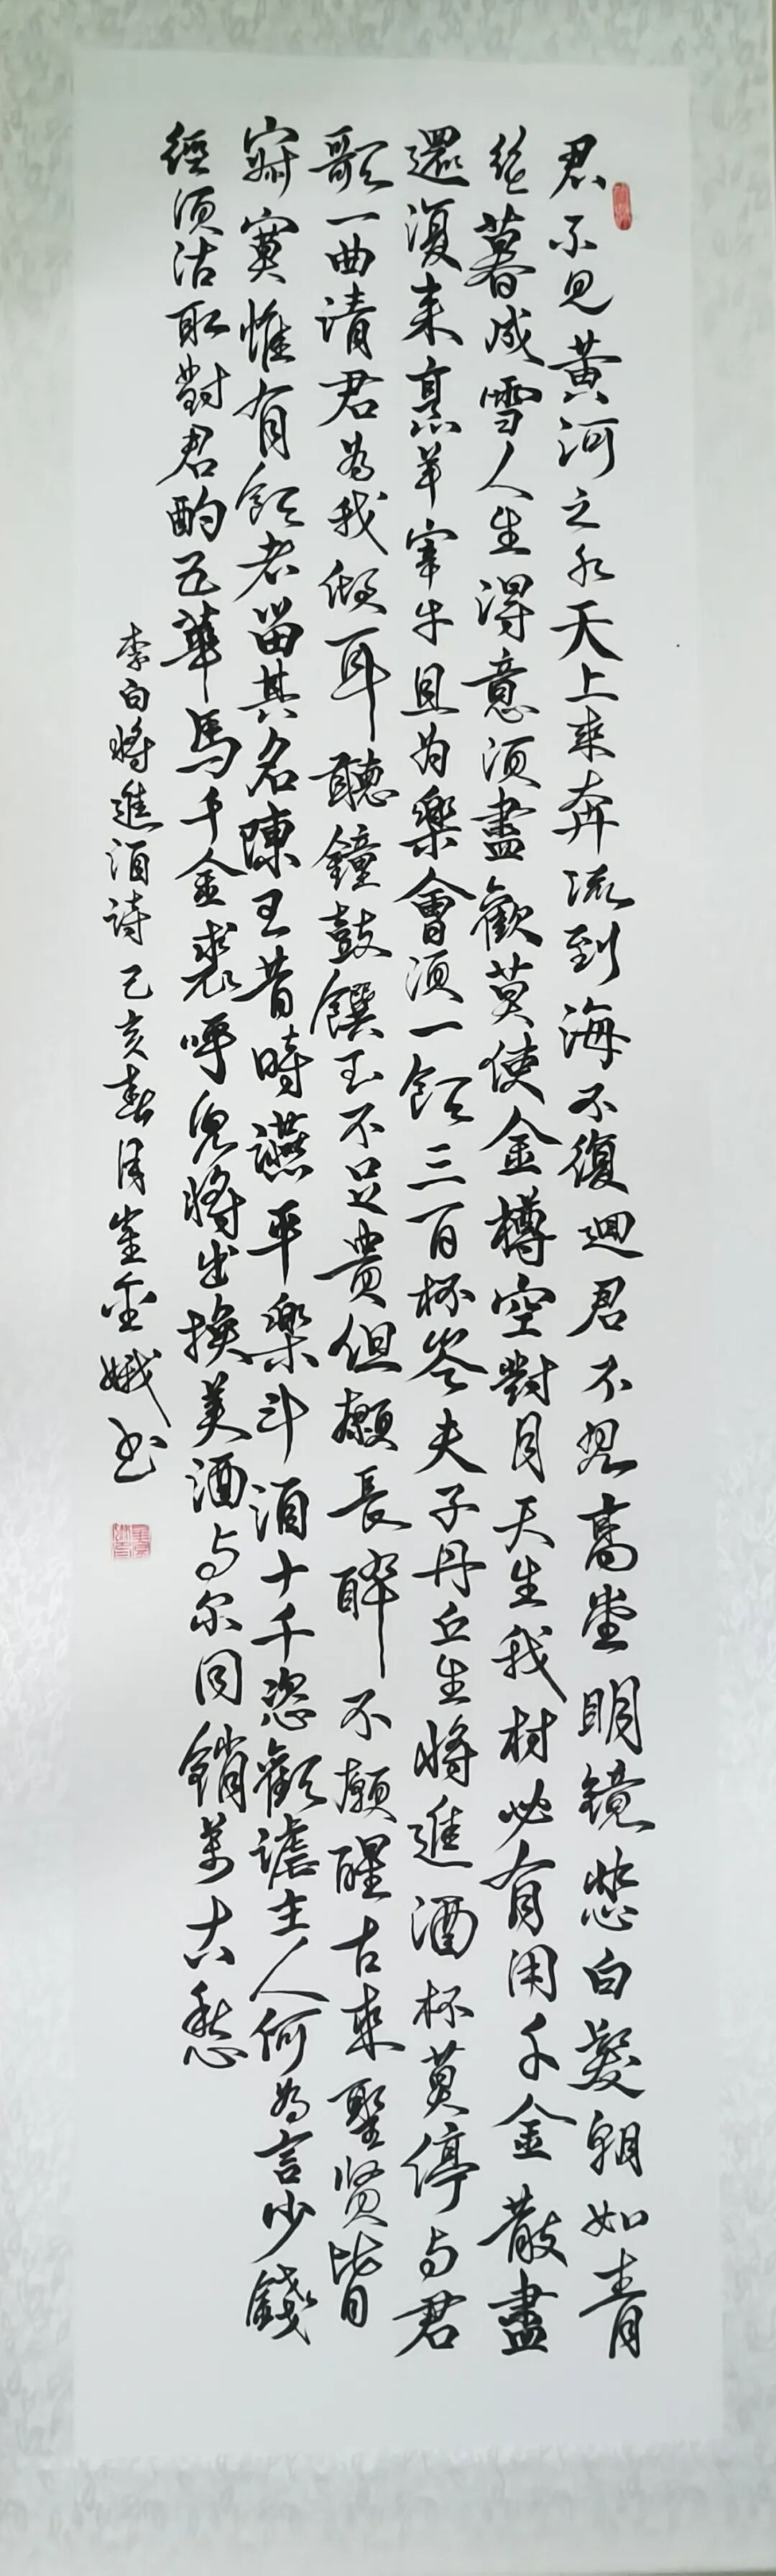 君不見黃河之水天上來奔流到海不復迴君不見高堂明鏡悲白髮朝如青
絲暮成雪人生得意須盡歡莫使金樽空對月天生我材必有用千金散盡
還復來烹羊宰牛且為樂會須一飲三百杯岑夫子丹丘生將進酒杯莫停与君
歌一曲請君為我傾耳聽鐘鼓饌玉不足貴但願長醉不願醒古來聖賢皆
寂寞惟有飲者留其名陳王昔時讌平樂斗酒十千恣歡謔主人何為言少錢
徑須沽取對君酌五華馬千金裘呼兒將出換美酒与尔同銷萬古愁
李白將進酒詩己亥春月崔金娥书